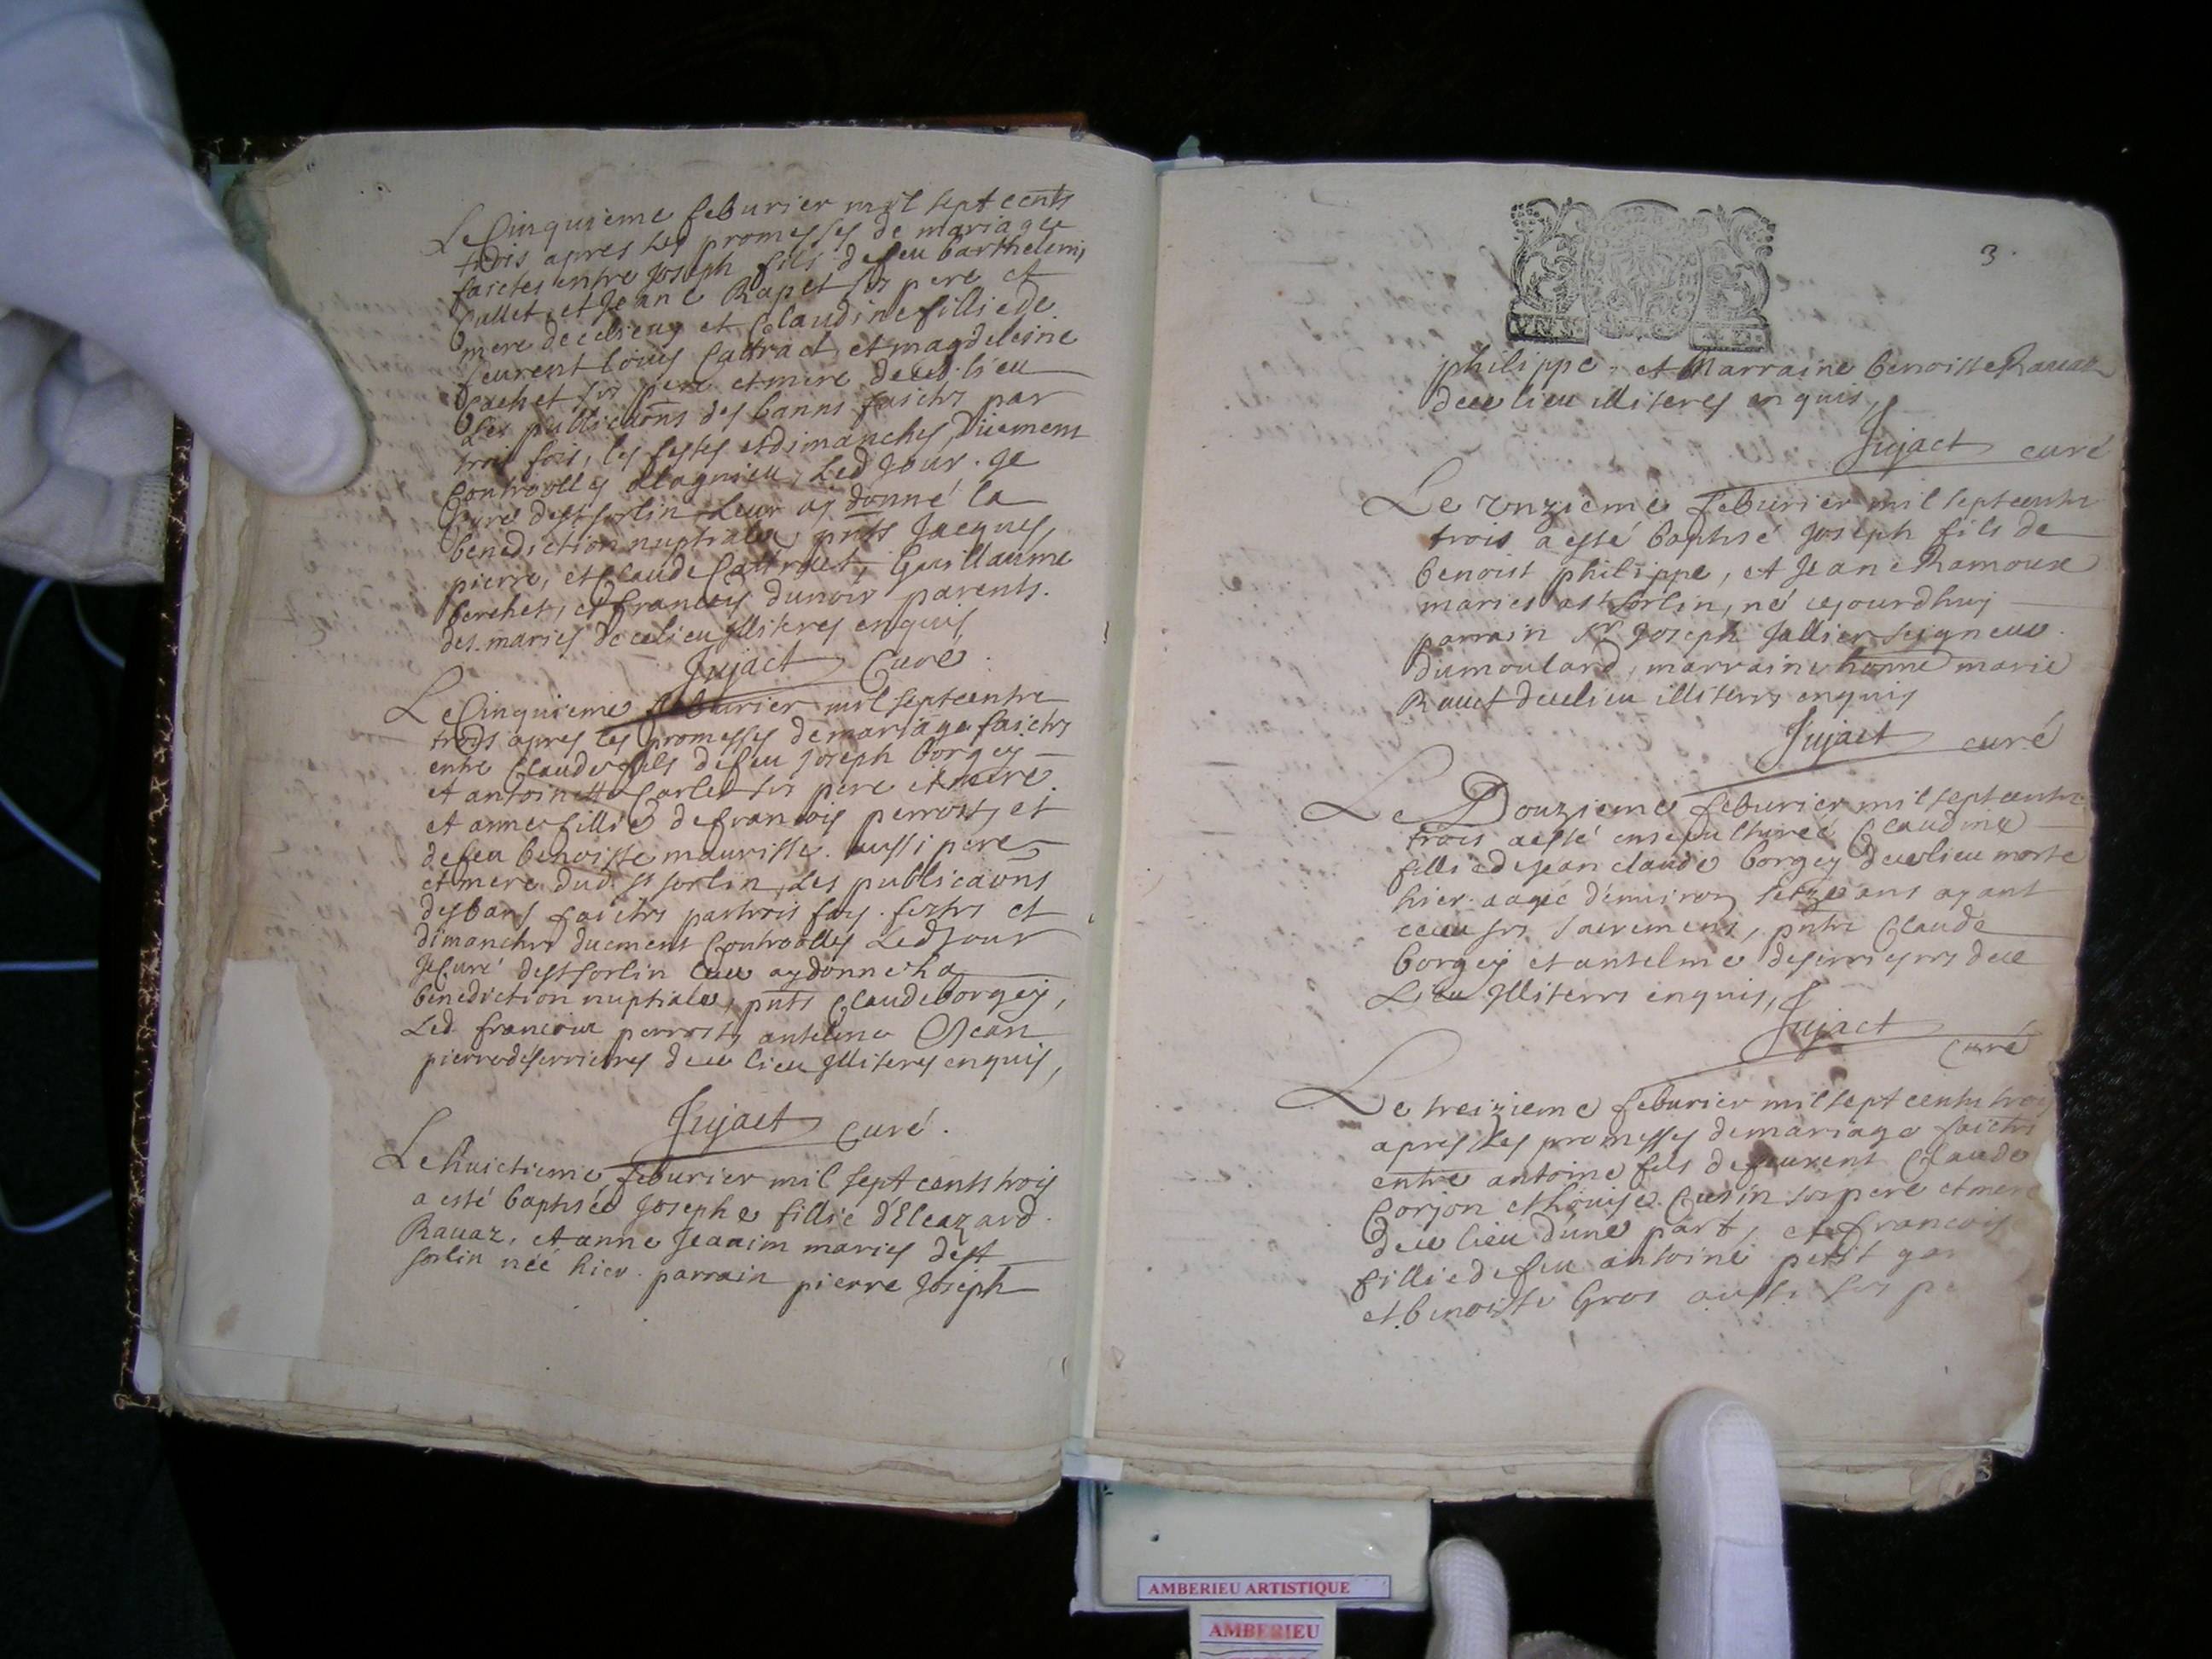 Le Cinquieme feburier mil sept cents
trois apres les promesses de mariage
faictes entre Joseph fils de feu barthelemi
Cullet, et Jeane Rapet ses pere et
mere de ce lieu et Claudine fillie de
feurent Louis Cattract et magdeleine
bachet ses pere et mere de ced. lieu
Les publicaons des banns faictes par
trois fois, les festes et dimanches, Duement
Controolles a lagnieu, Led Jour. Je
Curé de st sorlin Leur ay donné la
benediction nuptiale, pnts Jacques,
pierre, et Claude Cattract, Guillaume
berchet, et francois dunoir parents.
des. maries de ce lieu Illiteres enquis
Jujact Curé
Le Cinquieme feburier mil sept cents
trois apres les promesses de mariage faictes
entre Claude fils de feu Joseph borgey
et antoinette Carlet ses pere et mere.
et anne fillie de francois perrost, et
de feu benoiste maurisse. aussi pere
et mere dud. st sorlin, Les publicaons
des bans faictes par trois foys. festes et
dimanches duement Controolles Led Jour
Je Curé de st sorlin leur ay donne la
benediction nuptiale, pnts Claude borgey,
Led. francois perrost, antelme Jean
pierre deserrieres de ce lieu Illiteres enquis,
Jujact Curé.
Le huictieme feburier mil sept cents trois
a esté baptisée Josephe fillie d'Eleazard
Ravaz, et anne Jeanim maries de st
sorlin néé hier. parrain pierre Joseph
3.
philippe, et Marraine benoiste Ravaz
de ce lieu illiteres enquis,
Jujact curé
Le onzieme feburier mil sept cents
trois a esté baptisé Joseph fils de
benoist philippe, et Jeane Ramoux
maries a st sorlin, né ce jourdhuy
parrain Sr Joseph Jallier seigneur
du moulard, marraine honne marie
Ravet de ce lieu illiteres enquis
Jujact curé
Le Douzieme feburier mil sept cents
trois a esté ensepulturéé Claudine
fillie de Jean claude borgey de ce lieu morte
hier. aagéé d'environ seize ans ayant
receu ses sacremens, pnts Claude
borgey et antelme deserrieres de ce
Lieu Illiteres enquis,
Jujact
Curé
Le treizieme feburier mil sept cents trois
apres les promesses de mariage faictes
entre antoine fils de feurent Claude
Corjon et Louise Cusin ses pere et mere
de ce lieu d'une part, et francoise
fillie de feu antoine petit
et benoiste Gros aussi ses
AMBERIEU ARTISTIQUE
AMBERIEU